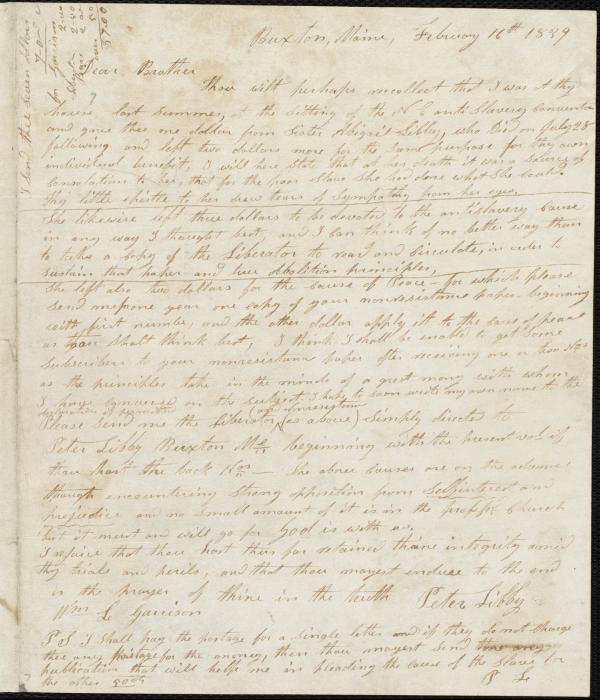 Buxton, Maine, February 16th 1839
Dear Brother
Thou wilt perhaps recollect that I was at thy
house last summer, at the sitting of the N E anti Slavery Convention
and gave thee one dollar from Sister Abigail Libby, who Died on July 28
following and left two dollars more for the same purpose for thy own
individual benefit, I will here state that at her death it was a source of
consolation to her, that for the poor Slave She had done what She could.
Thy little epistle to her drew tears of Sympathy from her eyes,
She likewise left three dollars to be devoted to the antislavery cause
in any way I thought best, and I can think of no better way than
to take a copy of the Liberator to read and circulate, in order to
sustain that paper and Abolition principles,
She left also two dollars for the cause of Peace — for which please
Send me one year one copy of your nonresistance paper beginning
with first number, and the other dollar apply it to the cause of peace
as thou shalt think best, I think I shall be enabled to get some
Subscribers to your nonresistance paper after receiving one or two Nos
as the principles take in the minds of a great many with whom
I have converse on the subject, I hope to soon write my own name to the
declaration of sentiments
Please Send me the Liberator (as above) Simply directed to
Peter Libby Buxton Me beginning with the present vol if
thou hast the back Nos — The above causes are on the advance
though encountering strong opposition from Selfinterest and
prejudice and no small amount of it is in the Church
but it must and will go for God is with us,
I rejoice that thou hast thus far retained thine integrity amid
thy trials and perils, and that thou mayest endure to the end
is the prayer of thine in the truth Peter Libby
Wm L Garrison
P S I shall pay the postage for a single letter and if they do not charge
thee any Postage for the money, then thou mayest send
publication that will help me in pleading the cause of the Slave for
the other 50cts P L
I send thee seven dollars
for Garrison 2.00
Liberator 2.50
Peace 2.00
50
$7.00